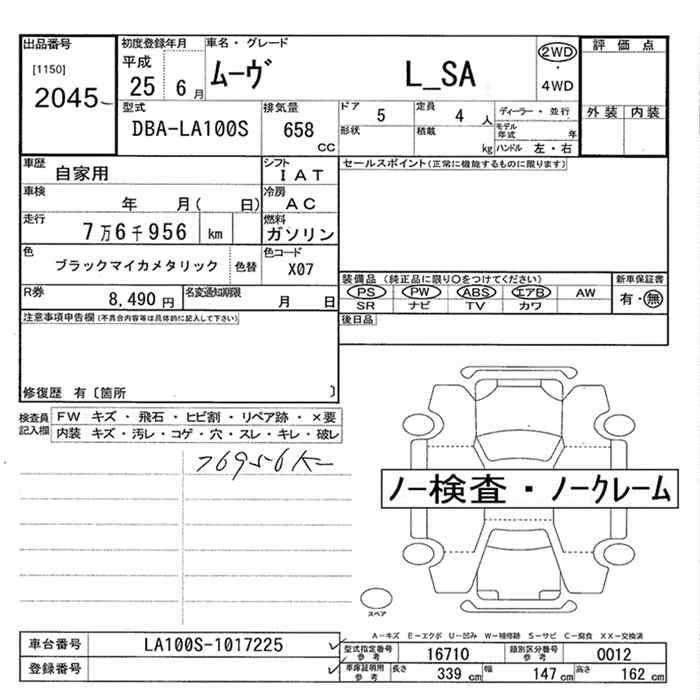 出品番号
[1150]
2045
初度登録年月
平成
25 6 月
車名・グレード
ムーヴ L_SA
2WD
・
4WD
評価点
外装 内装
型式
DBA-LA100S
排気量
658
CC
ドア 5
定員 4 人
形状
積載 kg
ディーラー・並行
モデル年式 年
ハンドル 左・右
車歴
自家用
シフト
IAT
車検
年 月( 日)
冷房
AC
走行
7万6千956 km
燃料
ガソリン
色
ブラックマイカメタリック
色替
色コード
X07
R券
8,490 円
名変通知期限
月 日
セールスポイント(正常に機能するものに限ります)
装備品 (純正品に限り○をつけてください)
PS PW ABS エアB AW
SR ナビ TV カワ
新車保証書
有・無
後日品
注意事項申告欄(不具合内容等は具体的に記入して下さい)
修復歴 有〔箇所 〕
検査員記入欄
FW キズ・飛石・ヒビ割・リペア跡・×要
内装 キズ・汚レ・コゲ・穴・スレ・キレ・破レ
76956K
ノー検査・ノークレーム
スペア
A-キズ E-エクボ U-凹み W-補修跡 S-サビ C-腐食 XX-交換済
車台番号
LA100S-1017225
登録番号
型式指定番号
参考
16710
類別区分番号
参考
0012
車庫証明用
参考
長さ 339 cm
幅 147 cm
高さ 162 cm